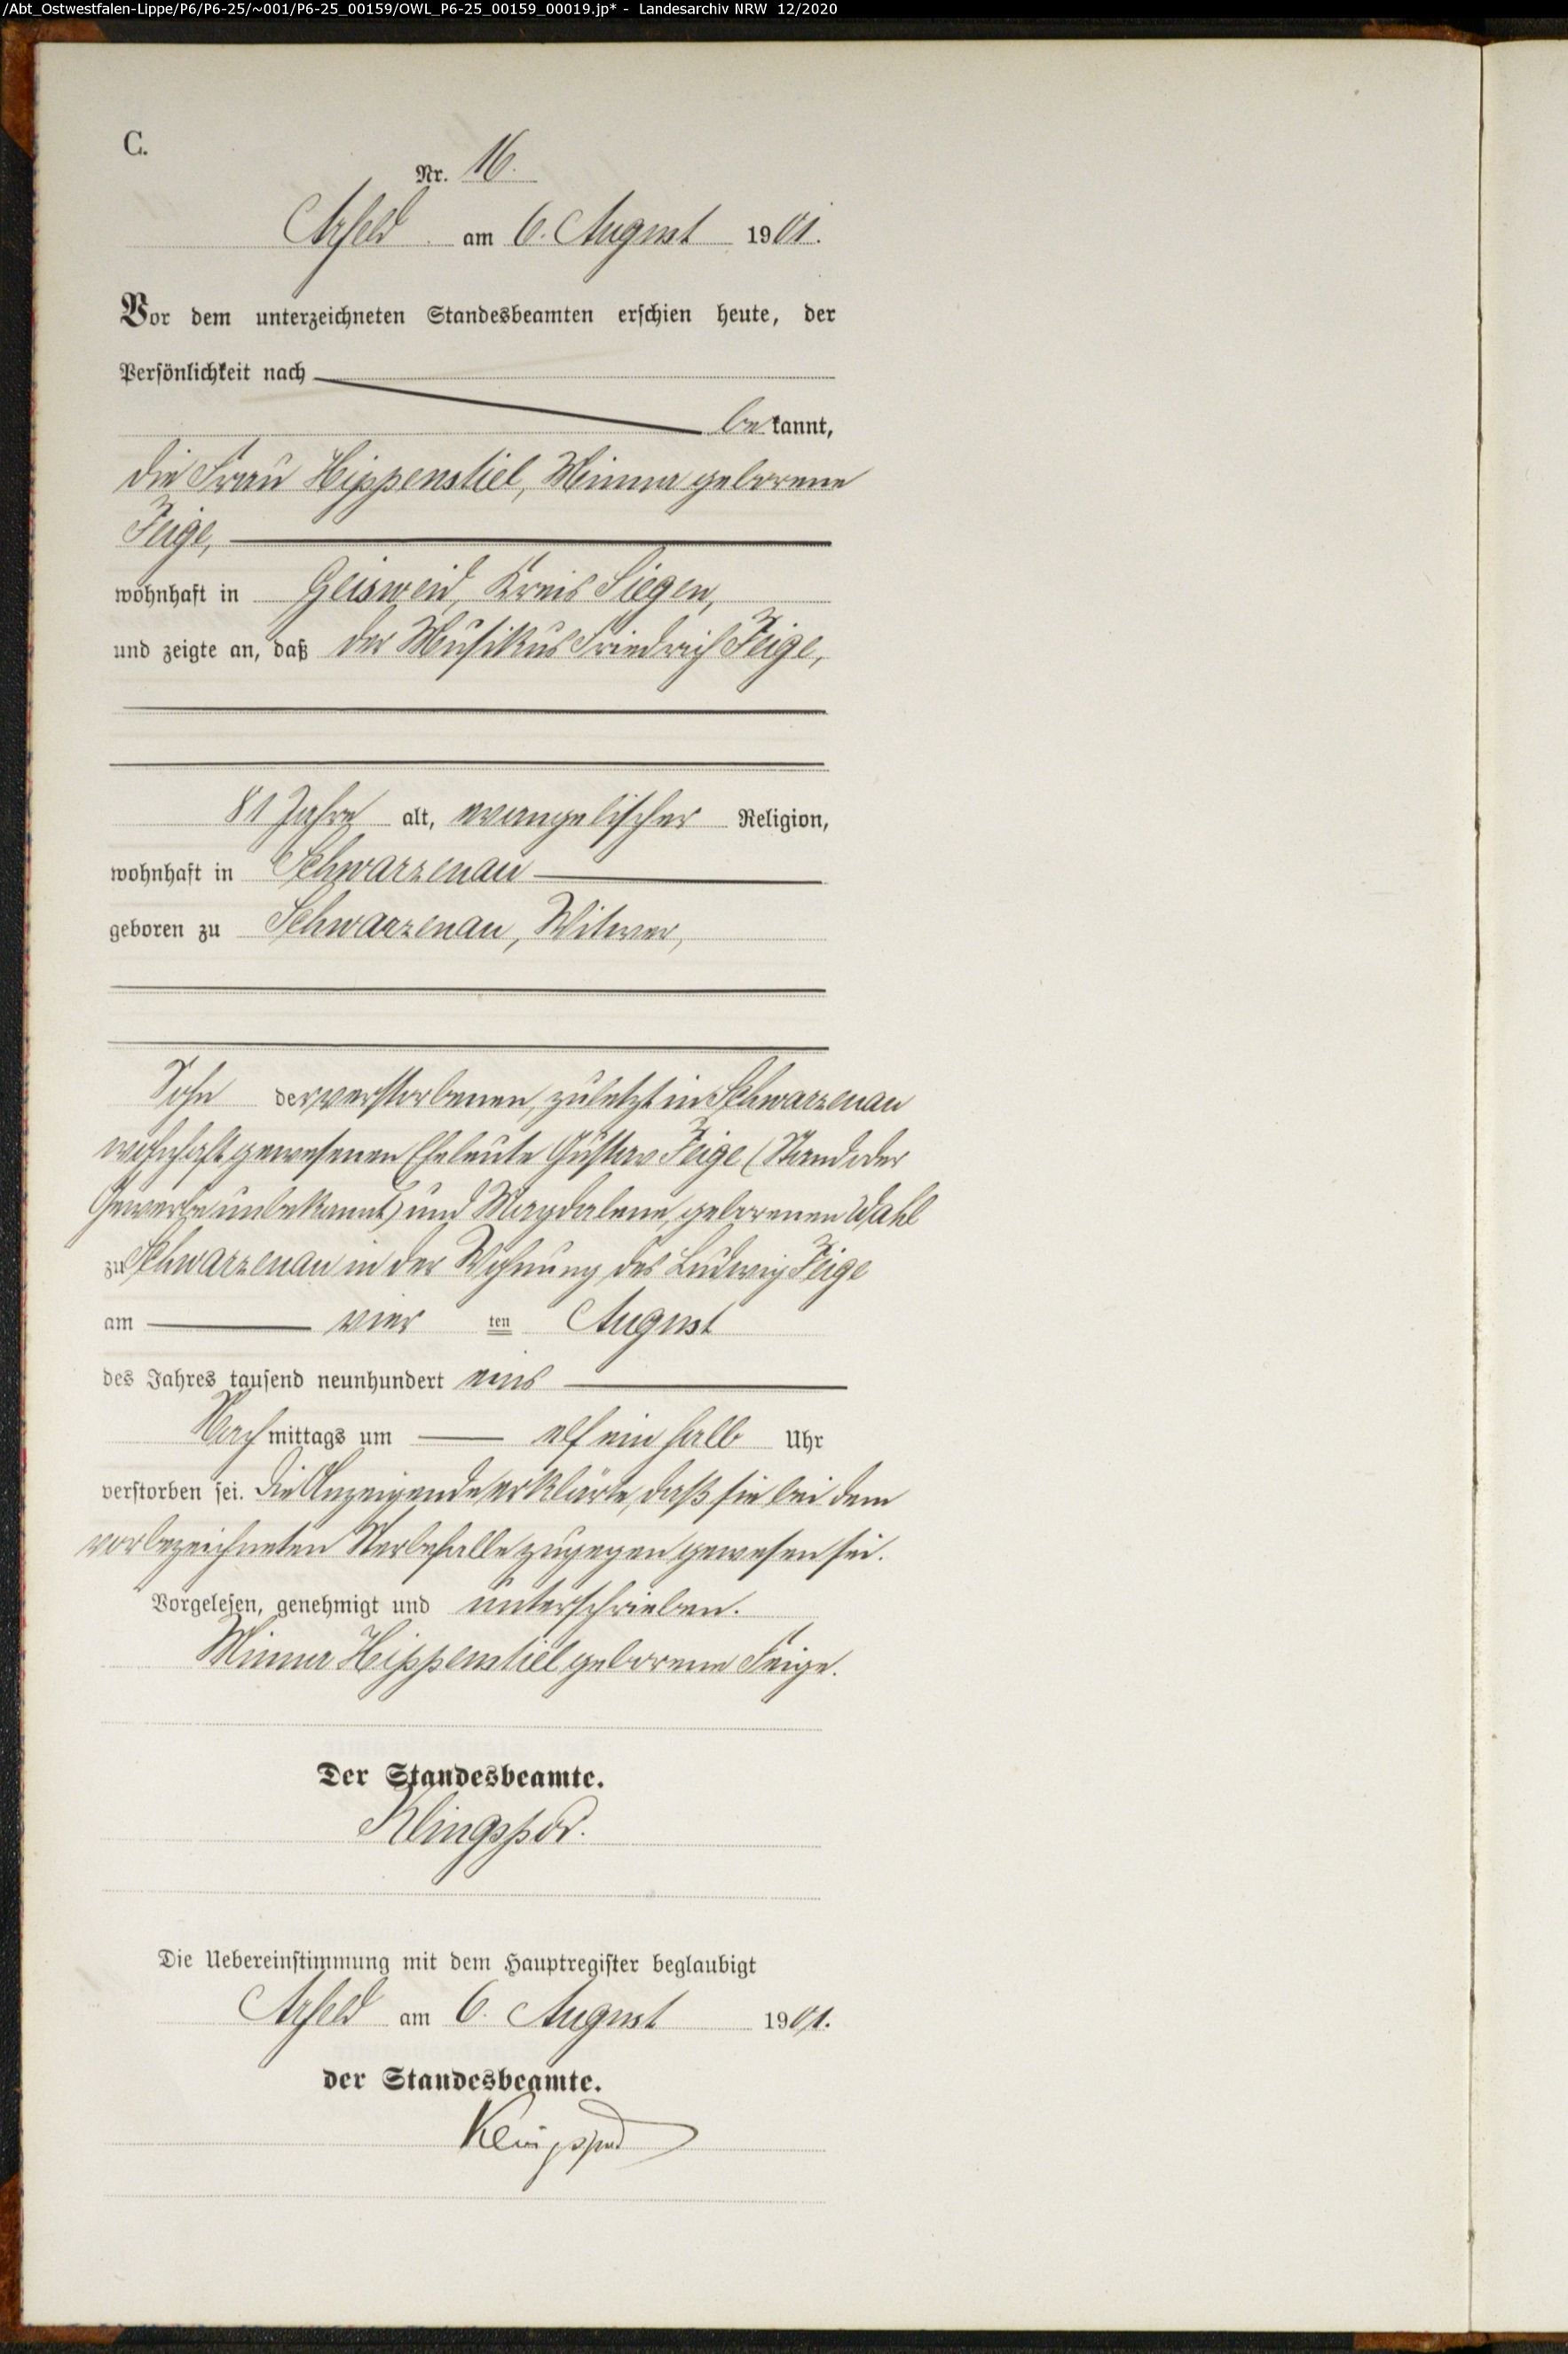 /Abt_Ostwestfalen-Lippe/P6/P6-25/~001/P6-25_00159/OWL_P6-25_00159_00019.jp* - Landesarchiv NRW 12/2020
C.
Nr. 16.
Arfeld am 6. August 1901.
Vor dem unterzeichneten Standesbeamten erschien heute, der
Persönlichkeit nach
bekannt,
die Frau Hippenstiel, Minna geborene
Feige,
wohnhaft in Geisweid, Kreis Siegen,
und zeigte an, daß der Musikus Friedrich Feige,
81 Jahre alt, evangelischer Religion,
wohnhaft in Schwarzenau
geboren zu Schwarzenau, Witwer,
Sohn der verstorbenen, zuletzt in Schwarzenau
wohnhaft gewesenen Eheleute Gustav Feige (Stand oder
Gewerbe unbekannt) und Magdalene, geborenen Wahl
zu Schwarzenau in der Wohnung des Ludwig Feige
am vier ten August
des Jahres tausend neunhundert eins
Nachmittags um elf ein halb Uhr
verstorben sei. Die Anzeigende erklärte, daß sie bei dem
vorbezeichneten Sterbefalle zugegen gewesen sei.
Vorgelesen, genehmigt und unterschrieben.
Minna Hippenstiel geborene Feige.
Der Standesbeamte.
Klingspor.
Die Uebereinstimmung mit dem Hauptregister beglaubigt
Arfeld am 6. August 1901.
der Standesbeamte.
Klingspor